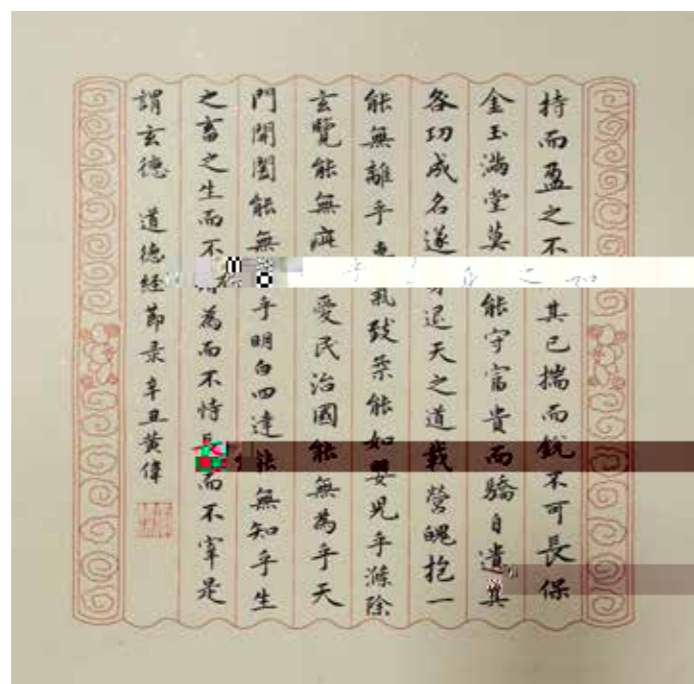 持而盈之不其已揣而銳不可長保
金玉滿堂莫能守富貴而驕自遺其
各功成名遂退天之道載營魄抱一
能無離乎氣致柔能如嬰兒乎滌除
玄覽能無疵愛民治國能無為乎天
門開闔能無乎明白四達能無知乎生
之畜之生而不為而不恃而不宰是
謂玄德 道德経節录 辛丑黄偉